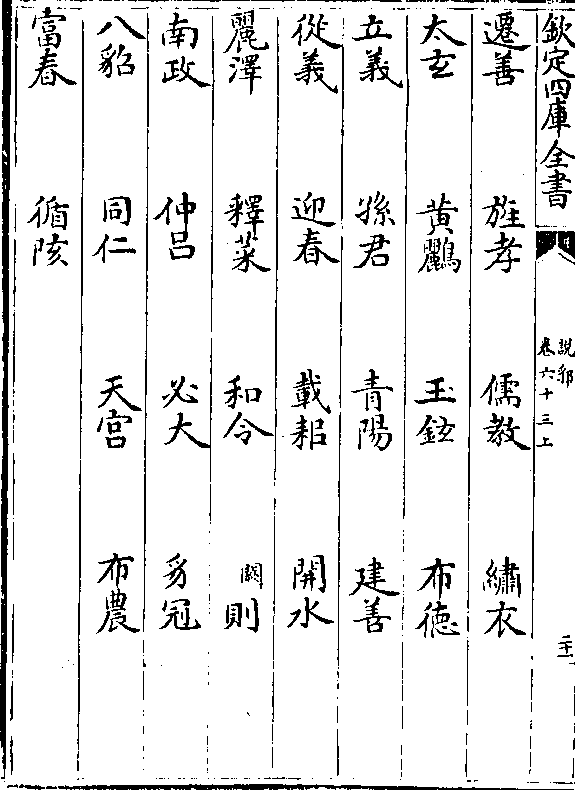 欽定四庫全書
說郛
卷六十三上
二十一
遷善 旌孝 儒教 繡衣
太玄 黄鸝 玉鉉 布徳
立義 孫君 青陽 建善
從義 迎春 載耜 開水
麗澤 釋菜 和令 闕則
南政 仲吕 必大 豸冠
八貂 同仁 天宫 布農
富春 循陔